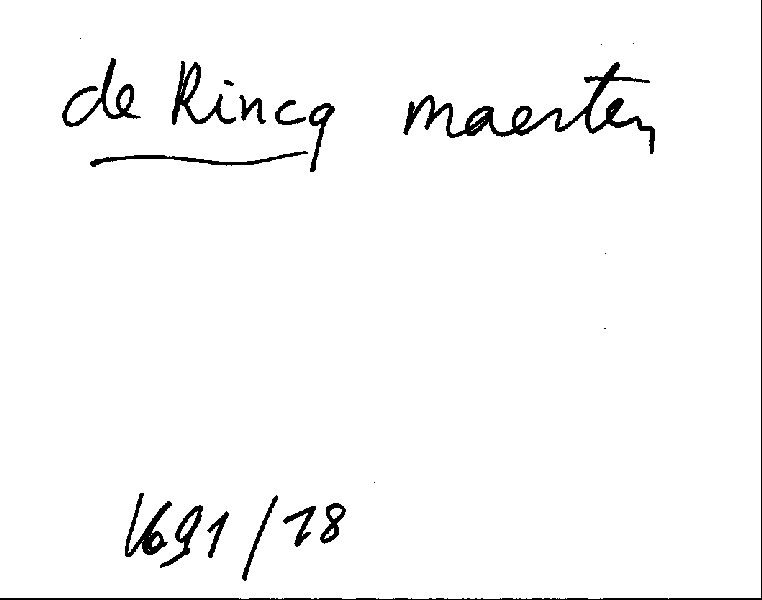 de Rincq maerten
1691/18